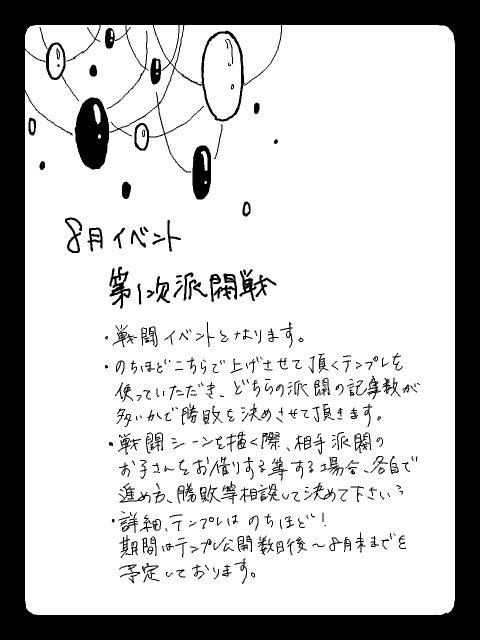 8月イベント
第1次派閥戦
・戦闘イベントとなります。
・のちほどこちらで上げさせて頂くテンプレを
使っていただき、どちらの派閥の記事数が
多いかで勝敗を決めさせて頂きます。
・戦闘シーンを描く際、相手派閥の
お子さんをお借りする等する場合、各自で
進め方、勝敗等相談して決めて下さい
・詳細、テンプレは のちほど！
期間はテンプレ公開数日後～8月末までを
予定しております。